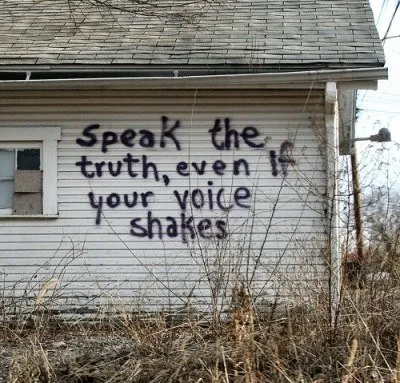 speak the
truth, even if
your voice
shakes